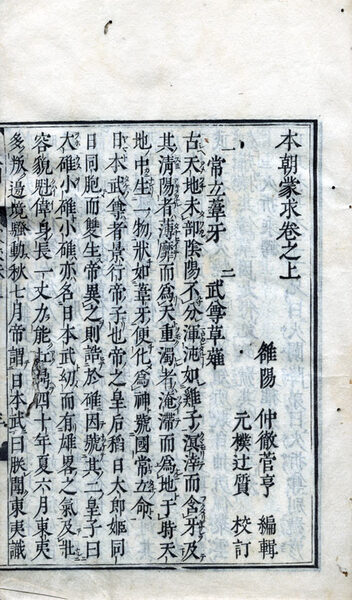 本朝蒙求卷之上
雒陽 仲徹菅亨 編輯
元樸辻質 校訂
一 常立葦牙 二 武尊草薙
古天地未部陰陽不分渾沌如雞子溟涬而含牙及
其淸陽者薄靡而為天重濁者淹滯而為地于時天
地中生一物狀如葦牙便化為神號國常立命
日本武尊者景行帝子也帝之皇后稻日大郎姬同
日同胞而雙生帝異之則誥於碓因號其二皇子曰
大碓小碓小碓亦名日本武幼而有雄畧之氣及壯
容貌魁偉身長一丈力能扛鼎四十年夏六月東夷
多叛邊境騷動秋七月帝謂日本武曰朕聞東夷識